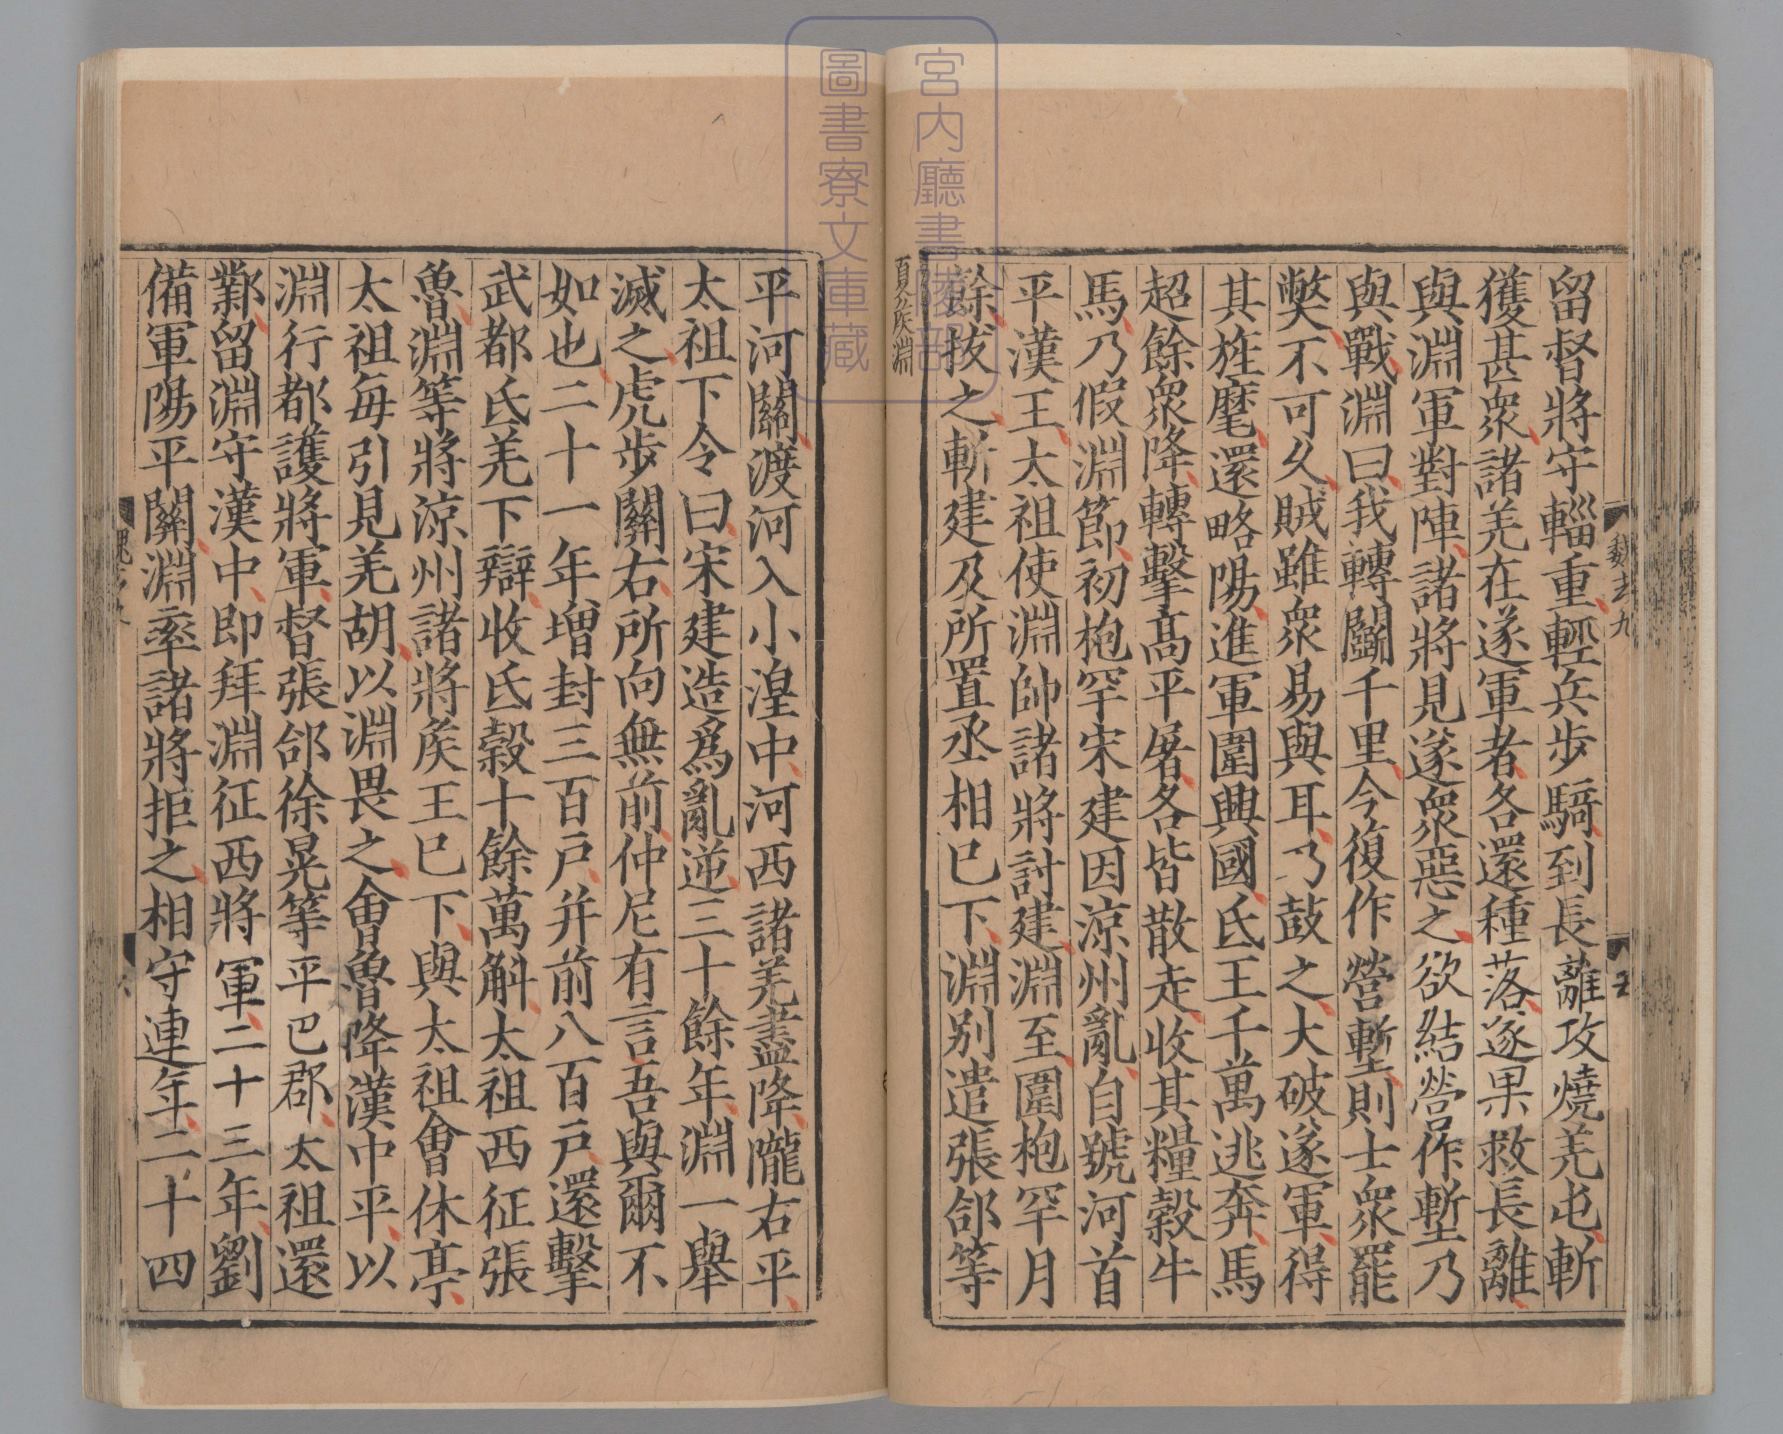 留督將守輜重輕兵步騎到長離攻燒羌屯斬
獲甚衆諸羌在遂軍者各還種落遂果救長離
與淵軍對陣諸將見遂衆惡之欲結營作塹乃
與戰淵曰我轉鬬千里今復作營塹則士衆罷
弊不可久賊雖衆易與耳乃鼓之大破遂軍得
其旌麾還略陽進軍圍興國氐王千萬逃奔馬
超餘衆降轉擊高平屠各皆散走收其糧穀牛
馬乃假淵節初枹罕宋建因涼州亂自號河首
平漢王太祖使淵帥諸將討建淵至圍枹罕月
餘拔之斬建及所置丞相已下淵别遣張郃等
夏矦淵
平河關渡河入小湟中河西諸羌盡降隴右平
太祖下令曰宋建造爲亂逆三十餘年淵一舉
滅之虎步關右所向無前仲尼有言吾與爾不
如也二十一年增封三百户并前八百户還擊
武都氐羌下辯收氐穀十餘萬斛太祖西征張
魯淵等將涼州諸將矦王已下與太祖會休亭
太祖每引見羌胡以淵畏之會魯降漢中平以
淵行都護將軍督張郃徐晃等平巴郡太祖還
鄴留淵守漢中即拜淵征西將軍二十三年劉
備軍陽平關淵率諸將拒之相守連年二十四
魏志九
五
宮内廳書陵部
圖書寮文庫藏